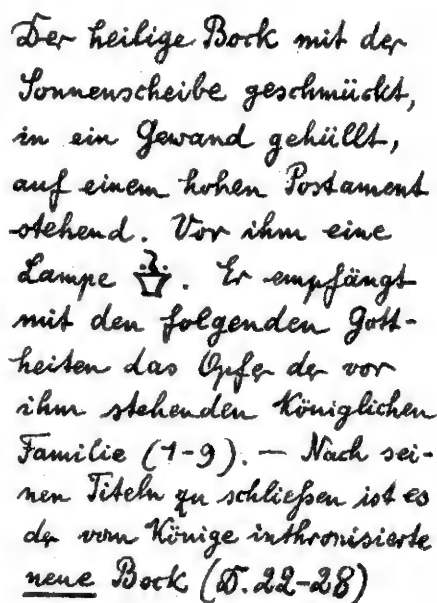 Der heilige Bock mit der
Sonnenscheibe geschmückt,
in ein Gewand gehüllt,
auf einem hohen Postament
stehend. Vor ihm eine
Lampe. Er empfängt
mit den folgenden Gott-
heiten das Opfer der vor
ihm stehenden Königlichen
Familie (1-9). — Nach sei-
nen Titeln zu schließen ist es
der vom Könige inthronisierte
neue Bock (D. 22-28)